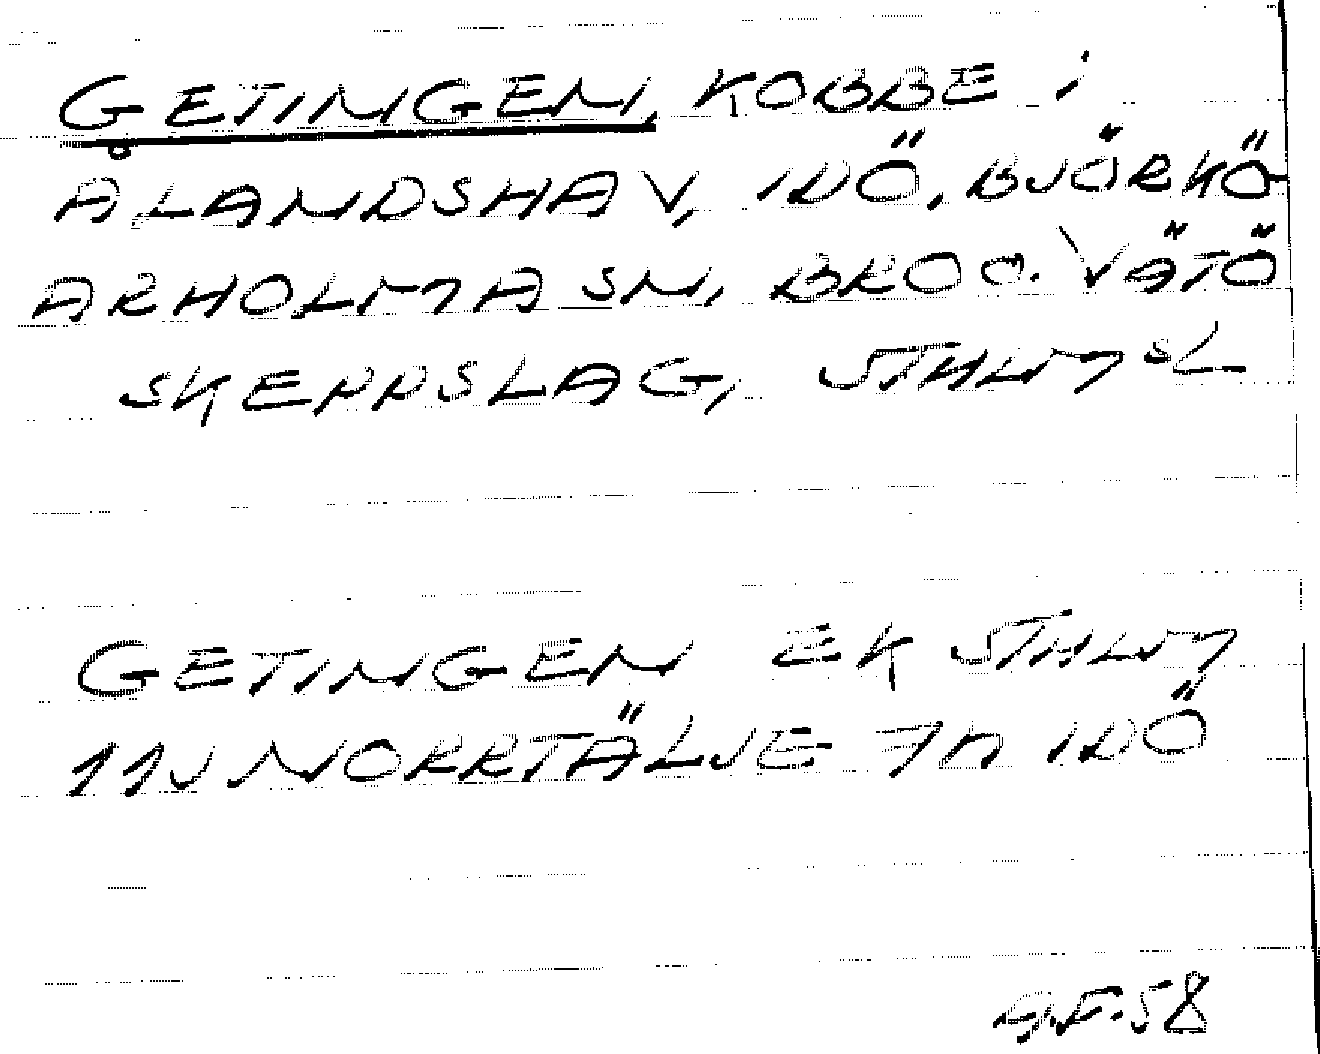 GETINGEN, KOBBE i
ÅLANDSHAV, IDÖ, BJÖRKÖ-
ARHOLMA SN, BRO O. VÄTÖ
SKEPPSLAG, STHLMS L
GETINGEN EK STHLM
11J NORRTÄLJE 7h IDÖ
G.F. 58